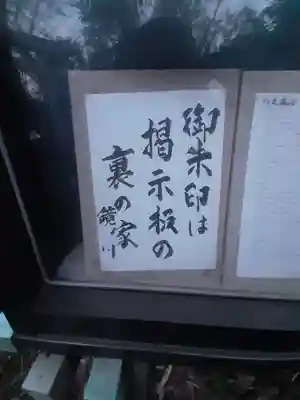 御朱印は
掲示板の
裏の家
鏡川